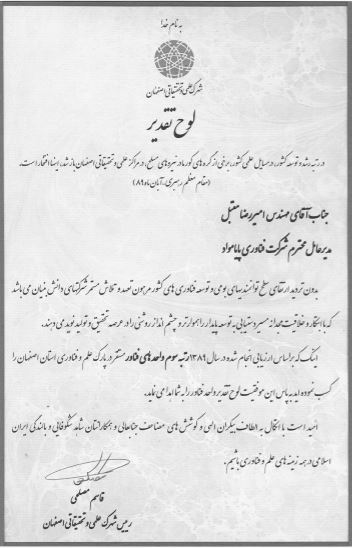 به نام خدا
شهرک علمی و تحقیقاتی اصفهان
لوح تقدیر
در رتبه رشد و توسعه کشور، در مسایل علمی کشور، برخی از گره های کور ما در نیروهای مسلح، در مراکز علمی و تحقیقاتی اصفهان باز شد، اینها افتخار است.
(مقام معظم رهبری، آبان ماه ۸۹)
جناب آقای مهندس امیررضا مقبل
مدیرعامل محترم شرکت فناوری پایامواد
بدون تردید ارتقای سطح توانمندیهای بومی و توسعه فناوری های کشور مرهون تعهد و تلاش مستمر شرکتهای دانش بنیان می باشد
که با ابتکار و خلاقیت مجدانه مسیر دستیابی به توسعه پایدار را هموارتر و چشم انداز روشنی را در عرصه تحقیق و تولید نوید می دهند.
اینک که براساس ارزیابی انجام شده در سال ۱۳۸۹ رتبه سوم واحدهای فناور مستقر در پارک علم و فناوری استان اصفهان را
کسب نموده اید به پاس این موفقیت لوح تقدیر واحد فناور را به شما اهدا می نماید.
امید است با اتکال به الطاف بیکران الهی و کوشش های مضاعف جنابعالی و همکارانتان شاهد شکوفائی و بالندگی ایران
اسلامی در همه زمینه های علم و فناوری باشیم.
قاسم مصلحی
رییس شهرک علمی و تحقیقاتی اصفهان